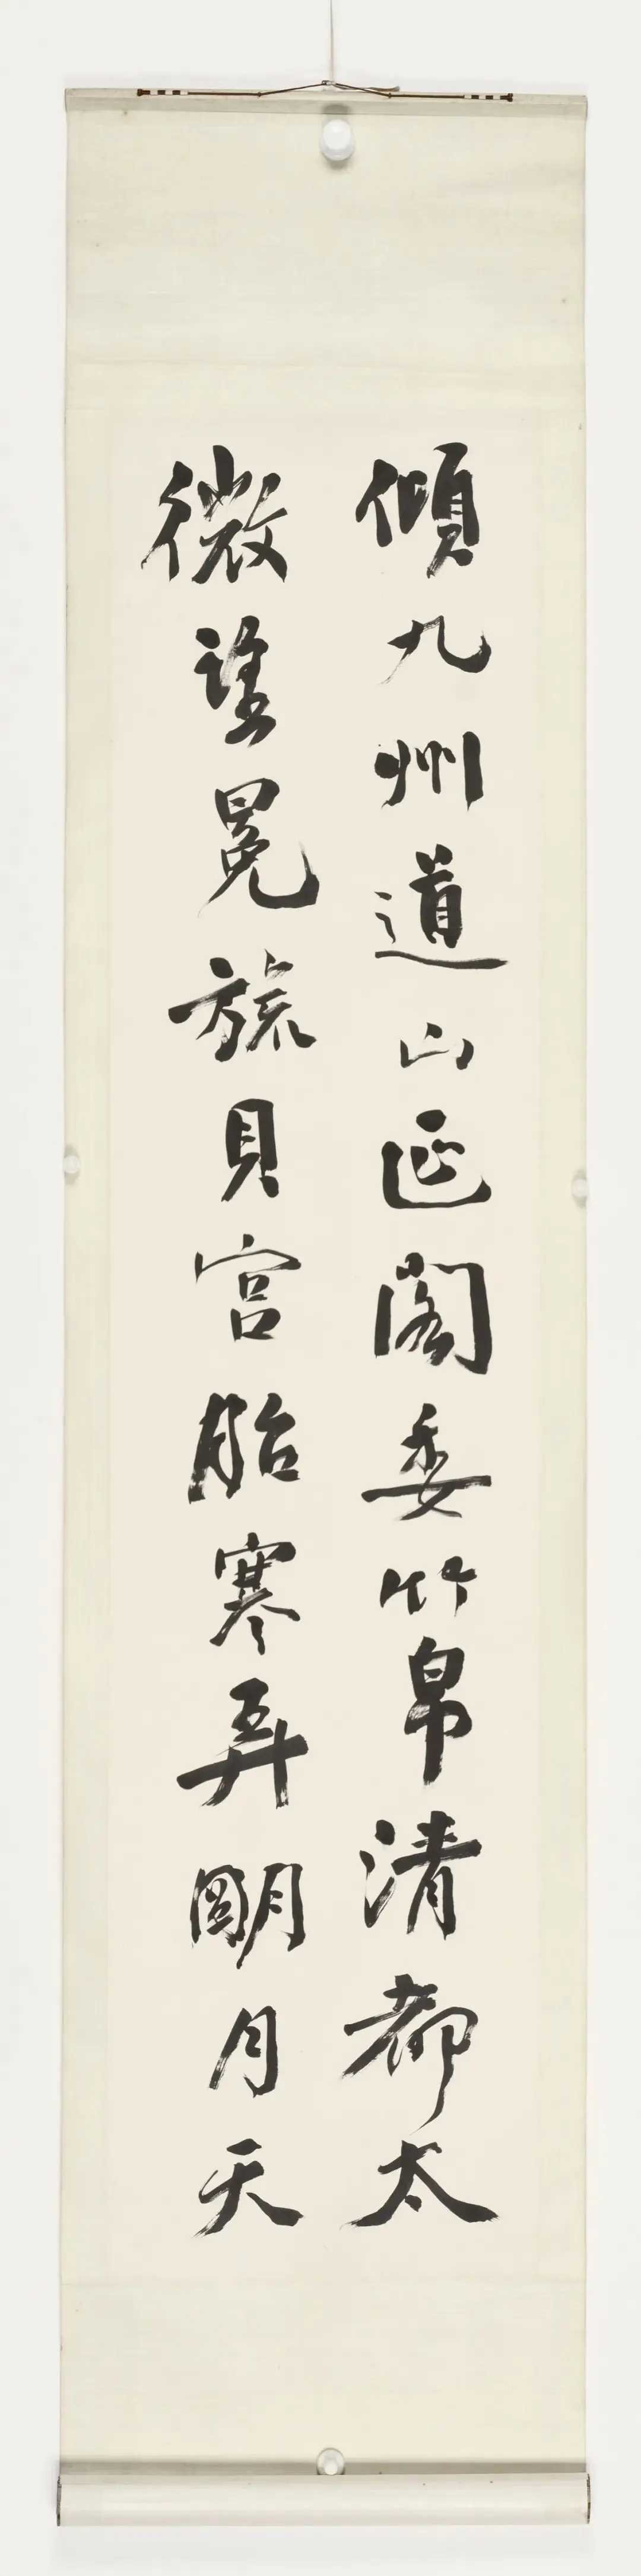 傾九州道山延閣委竹帛清都太
微望冕旒貝宮胎寒弄朙月天